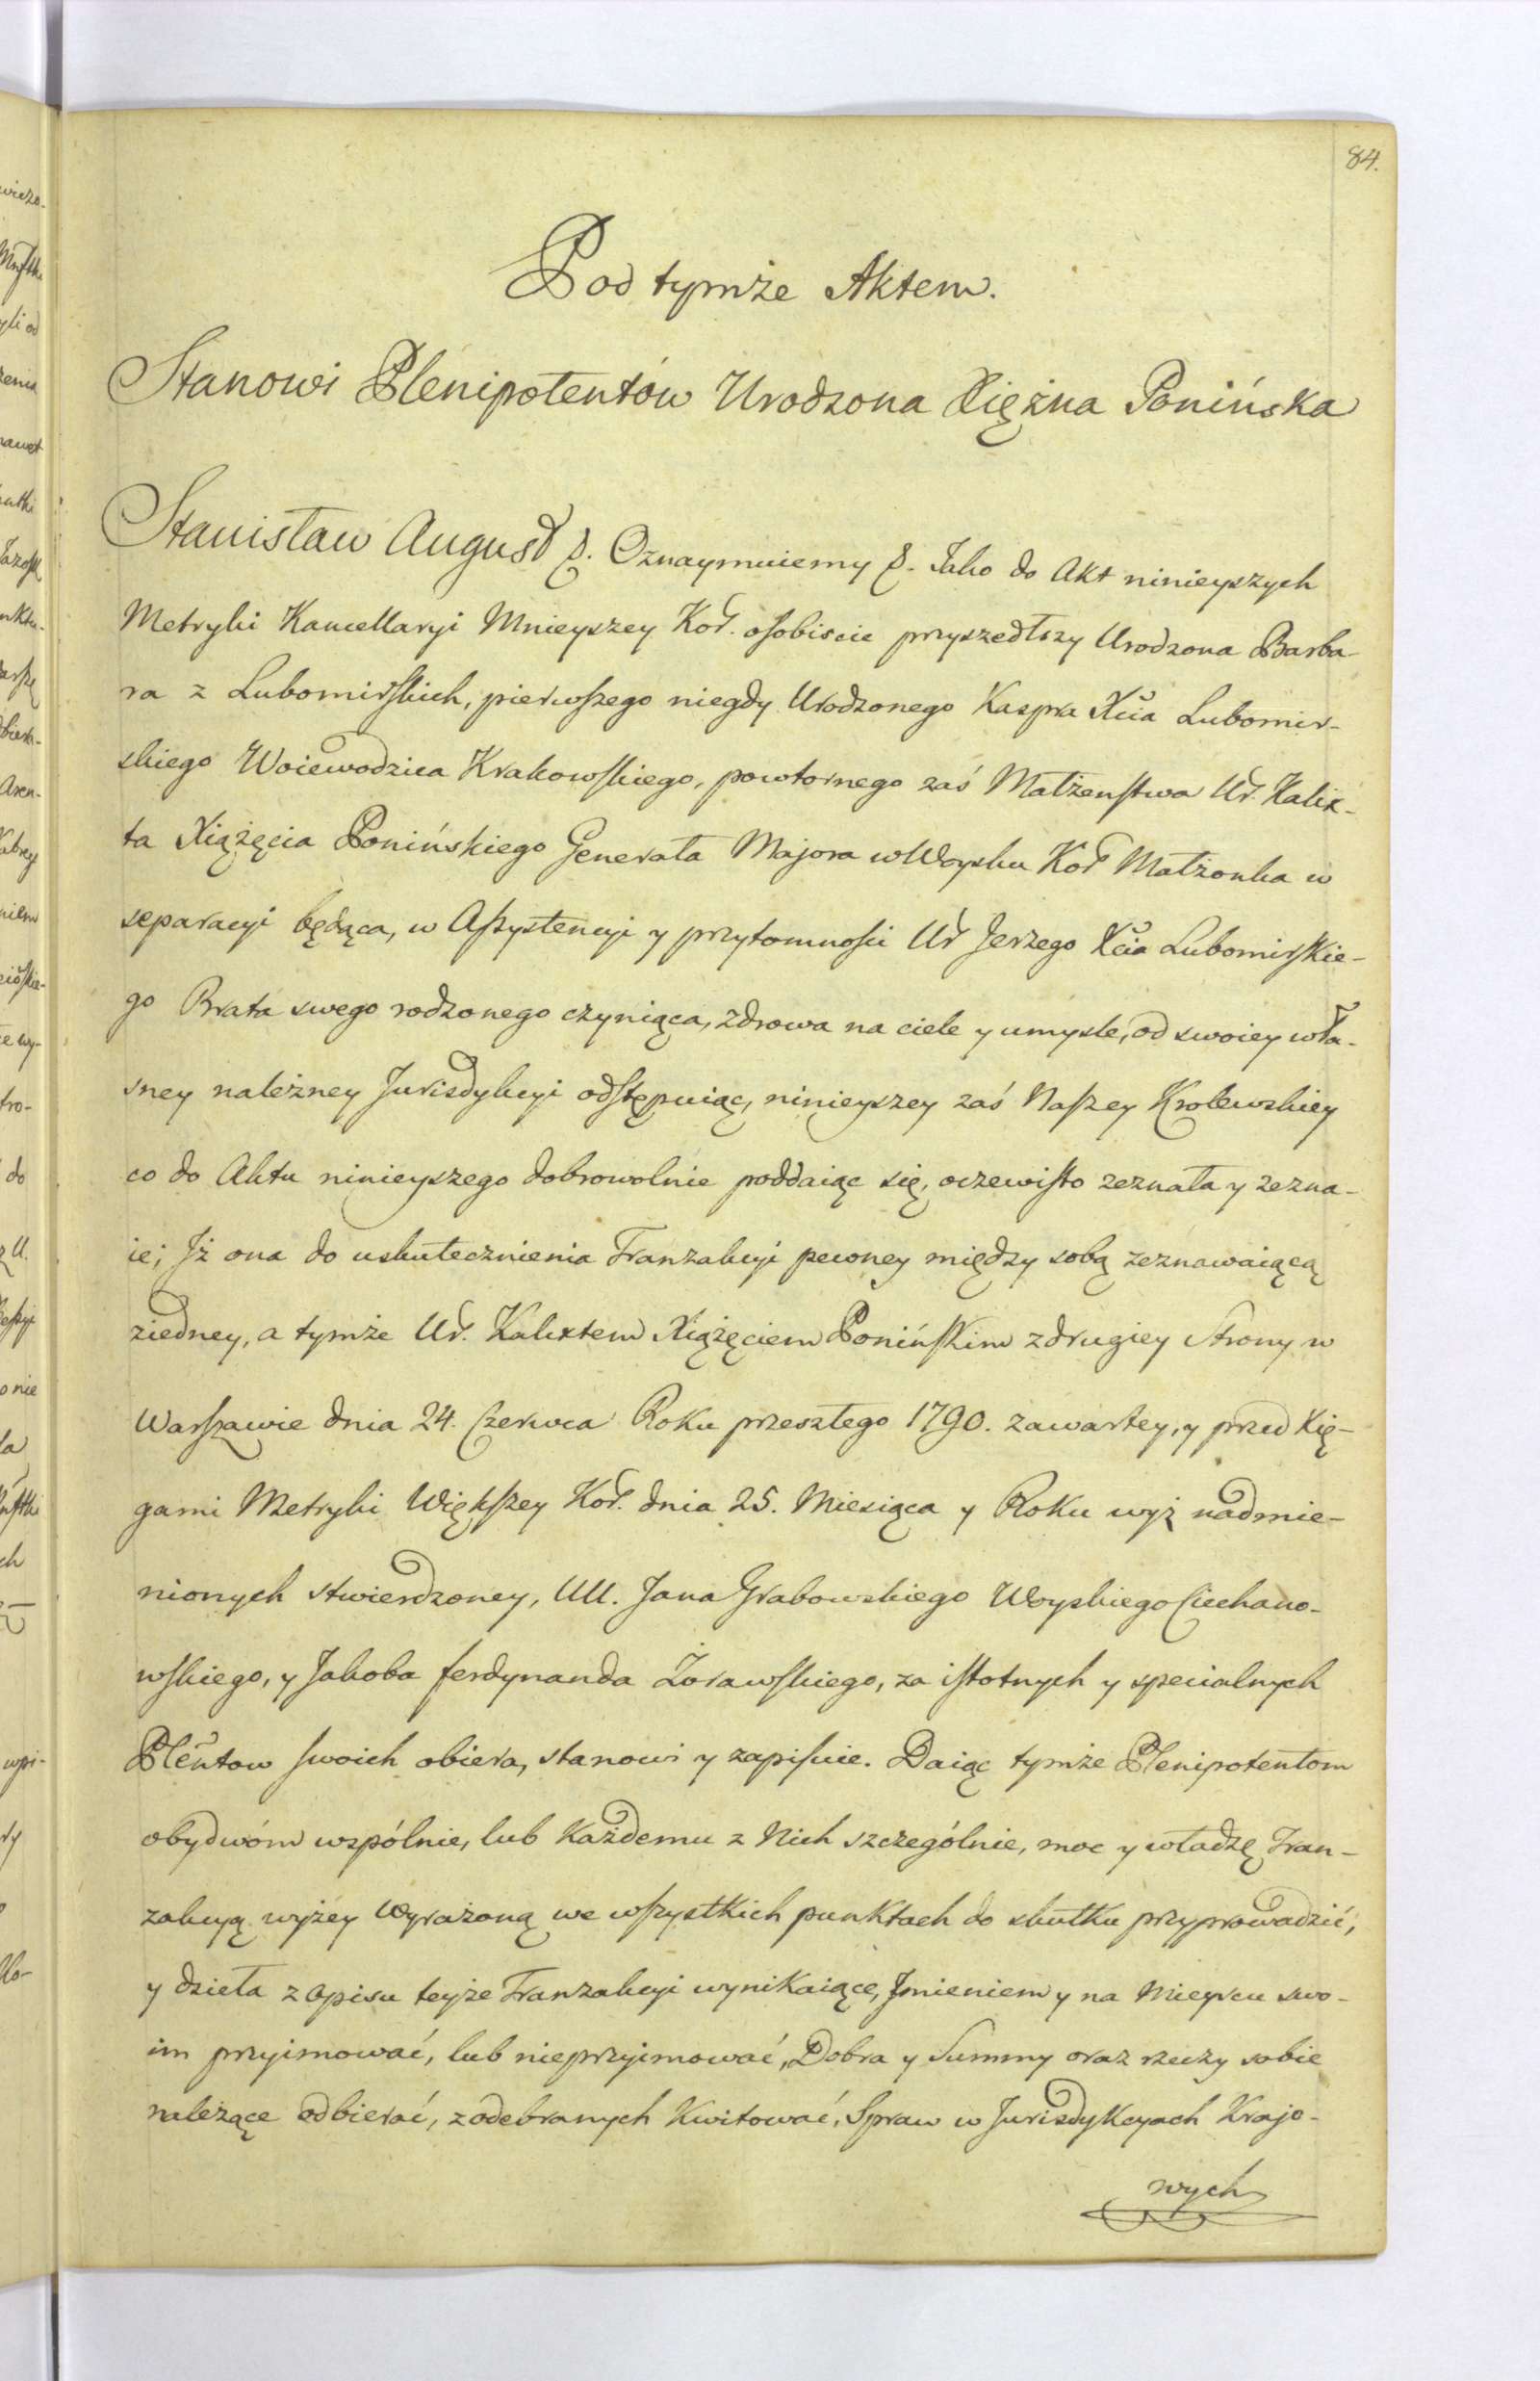 84.
Pod tymże Aktem.
Stanowi Plenipotentów Urodzona Xiężna Ponińska
Stanisław August &. Oznaymuiemy &. Jako do Akt ninieyszych
Metryki Kancellaryi Mnieyszey Kor. osobiscie przyszedłszy Urodzona Barba-
ra z Lubomirskich, pierwszego niegdy Urodzonego Kaspra Xcia Lubomir-
skiego Woiewodzica Krakowskiego, powtornego zaś Małżenstwa Ur. Kalix-
ta Xiążęcia Ponińskiego Generała Majora w Woysku Kor Małżonka w
separacyi będąca, w Assystencyi y przytomności Ur Jerzego Xcia Lubomirskie-
go Brata swego rodzonego czyniąca, zdrowa na ciele y umysle, od swoiey wła-
sney należney Jurisdykcyi odstępuiąc, ninieyszey zaś Naszey Krolewskiey
co do Aktu ninieyszego dobrowolnie poddaiąc się, oczewisto zeznała y zezna-
ie; Iż ona do uskutecznienia Tranzakcyi pewney między sobą zeznawaiącą
ziedney, a tymże Ur. Kalixtem Xiążęciem Ponińskim zdrugiey Strony w
Warszawie dnia 24. Czerwca Roku przeszłego 1790. zawartey, y przed Xię-
gami Metryki Większey Kor. dnia 25. Miesiąca y Roku wyż nadmie-
nionych stwierdzoney, UU. Jana Grabowskiego Woyskiego Ciechano-
wskiego, y Jakoba ferdynanda Żorawskiego, za istotnych y specialnych
Plentow swoich obiera, stanowi y zapisuie. Daiąc tymże Plenipotentom
obydwóm wspólnie, lub Każdemu z Nich szczególnie, moc y władzę Tran-
zakcyą wyżey Wyrażoną we wszystkich punktach do skutku przyprowadzić,
y dzieła z Opisu teyże Tranzakcyi wynikaiące, Imieniem y na Mieyscu swo-
im przyimować, lub nieprzyimować, Dobra y Summy oraz rzeczy sobie
należące odbierać, z odebranych Kwitować, Spraw w Jurisdykcyach Krajo-
wych